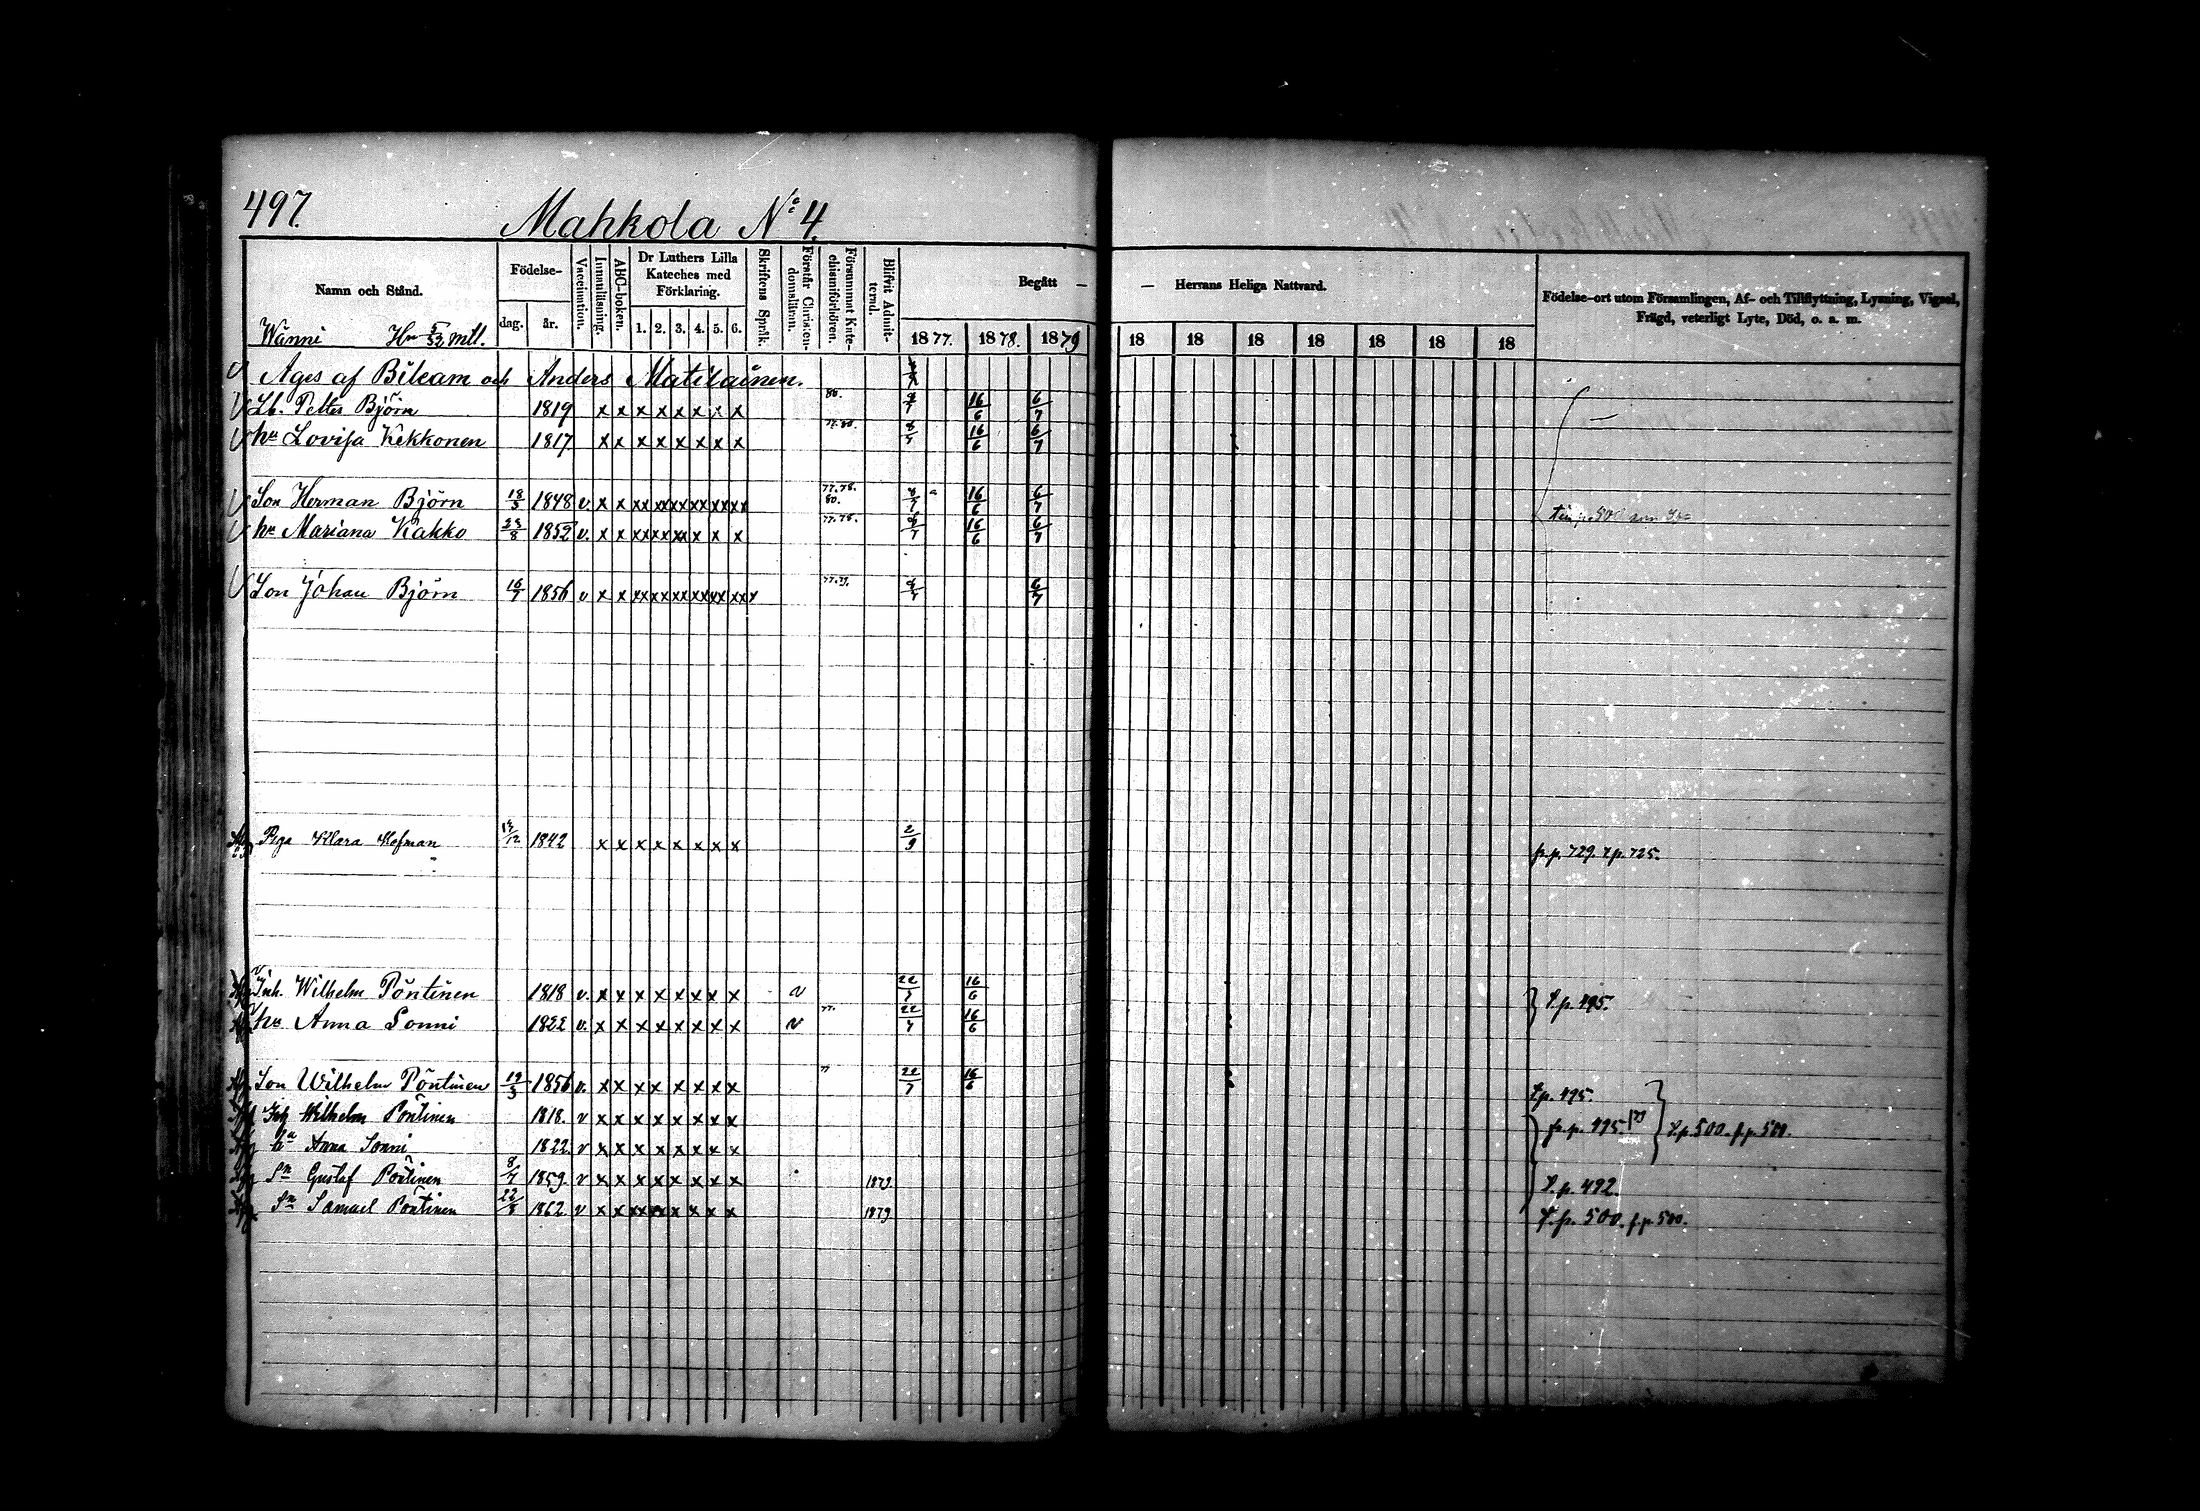 497. Mahkola No 4.
Namn och Stånd. Födelse- dag. år. Vaccination. Innanläsning. ABC-boken. Dr Luthers Lilla Kateches med Förklaring. 1. 2. 3. 4. 5. 6. Skriftens Språk. Förstår Christendomsläran. Försummat Katechismiförhören. Blifvit Admitterad. Begått — — Herrans Heliga Nattvard. Födelse-ort utom Församlingen, Af- och Tillflyttning, Lysning, Vigsel, Frägd, veterligt Lyte, Död, o. a. m.
Wänni mtl. 1877. 1878. 1879 18 18 18 18 18 18 18
Äges af Bileam och Anders Matilainen.
Lb. Petter Björn 1819 x x x x x x x x 80. 16/6 6/7
hu Lovisa Kekkonen 1817 x x x x x x x x 77.80. 8/7 16/6 6/7
Son Herman Björn 18/5 1848 v. x x xx xx xx xx xx xx 77.78. 80. 16/6 6/7
hu Mariana Kakko 23/8 1852 v. x x xx xx xx x x x 77.78. 16/6 6/7
Son Johan Björn 16/7 1856 v x x xx xx xx xx xx xxx 77.79. 6/7
Piga Klara Hofman 1842 x x x x x x x x 2/9 fr. p. 729. t. p. 725.
Inh. Wilhelm Pöntinen 1818 v. x x x x x x x x v 22/7 16/6 t. p. 495.
hu Anna Sonni 1822 v. x x x x x x x x v 77. 22/7 16/6
Son Wilhelm Pöntinen 19/3 1856 v. x x x x x x x x 22/7 16/6 t. p. 495.
Inh Wilhelm Pöntinen 1818. v x x x x x x x x fr. p. 495 t. p. 500. f. p. 500.
Anna Sonni 1822. v x x x x x x x x
Sn Gustaf Pöntinen 8/7 1859 v x x x x x x x x 1879. t. p. 492.
Sn Samuel Pöntinen 22/8 1862 v x x xx xx x x x x 1879 t. p. 500. f. p. 500.